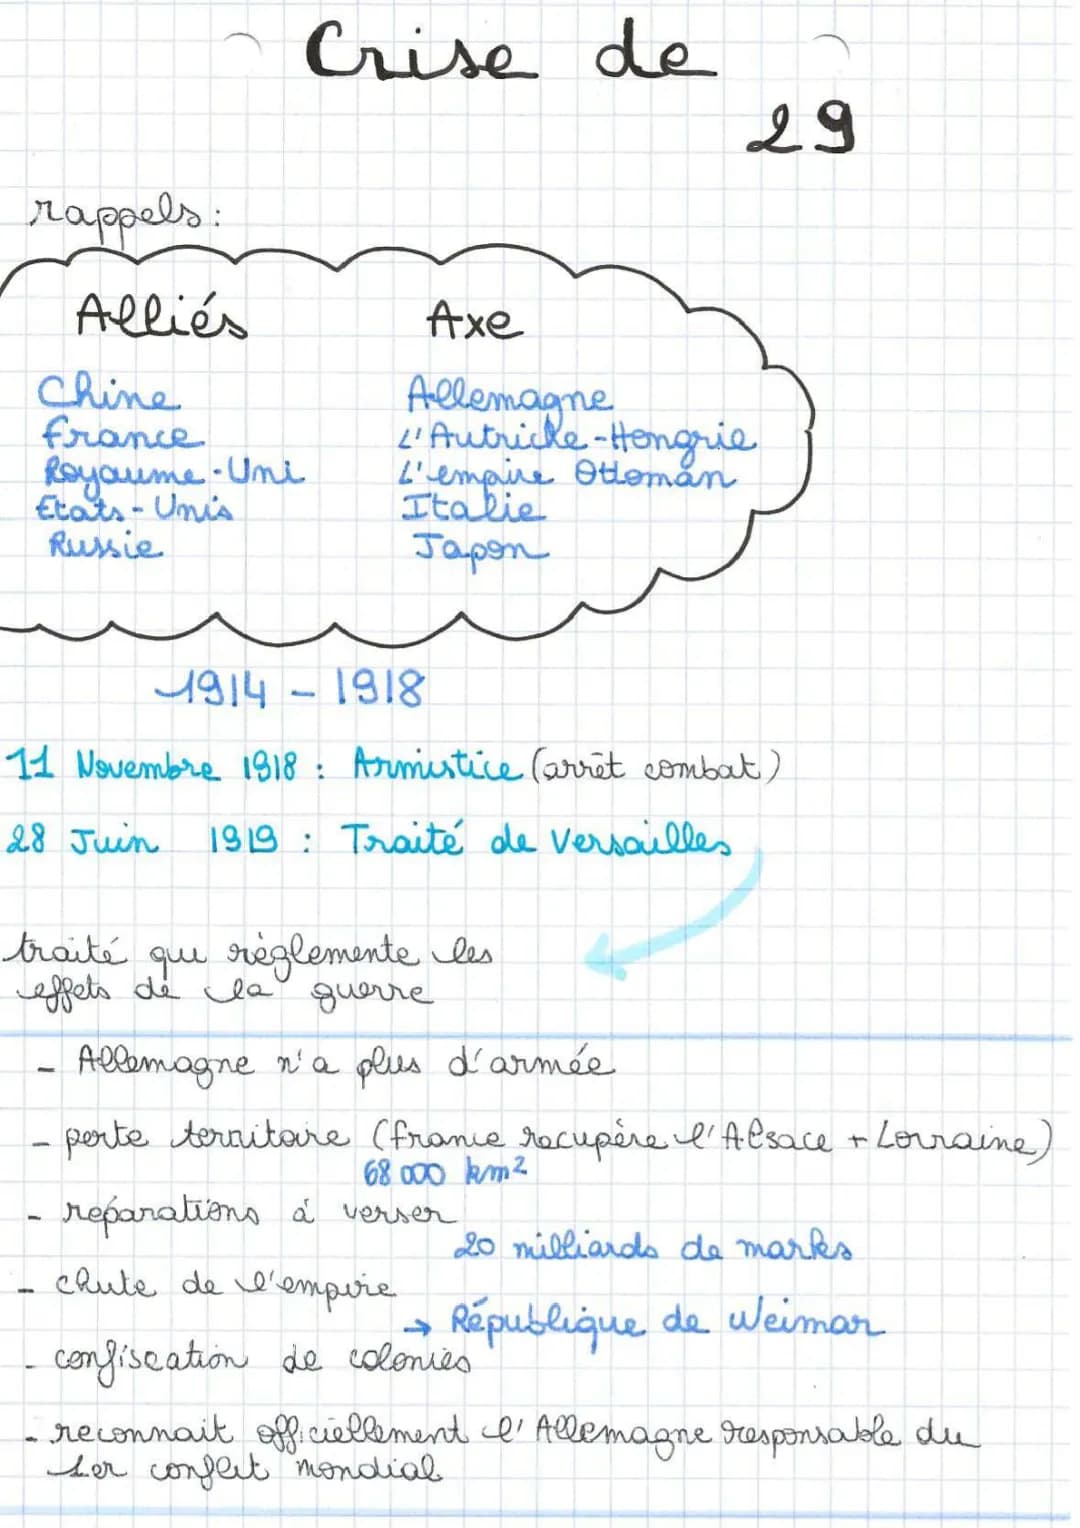 Crise de
29
rappels:
Alliés Axe
Chine Allemagne
France L'Autriche-Hongrie
Royaume-Uni L'empire Ottoman
Etats-Unis Italie
Russie Japon
1914 - 1918
11 Novembre 1918 : Armistice (arrêt combat)
28 Juin 1919 : Traité de Versailles
traité qui réglemente les
effets de la guerre
- Allemagne n'a plus d'armée
- perte territoire (France recupère l'Alsace + Lorraine)
68 000 km²
- réparations à verser
20 milliards de marks
- chute de l'empire
→ République de Weimar
- confiscation de colonies
- reconnait officiellement l'Allemagne responsable du
1er conflit mondial